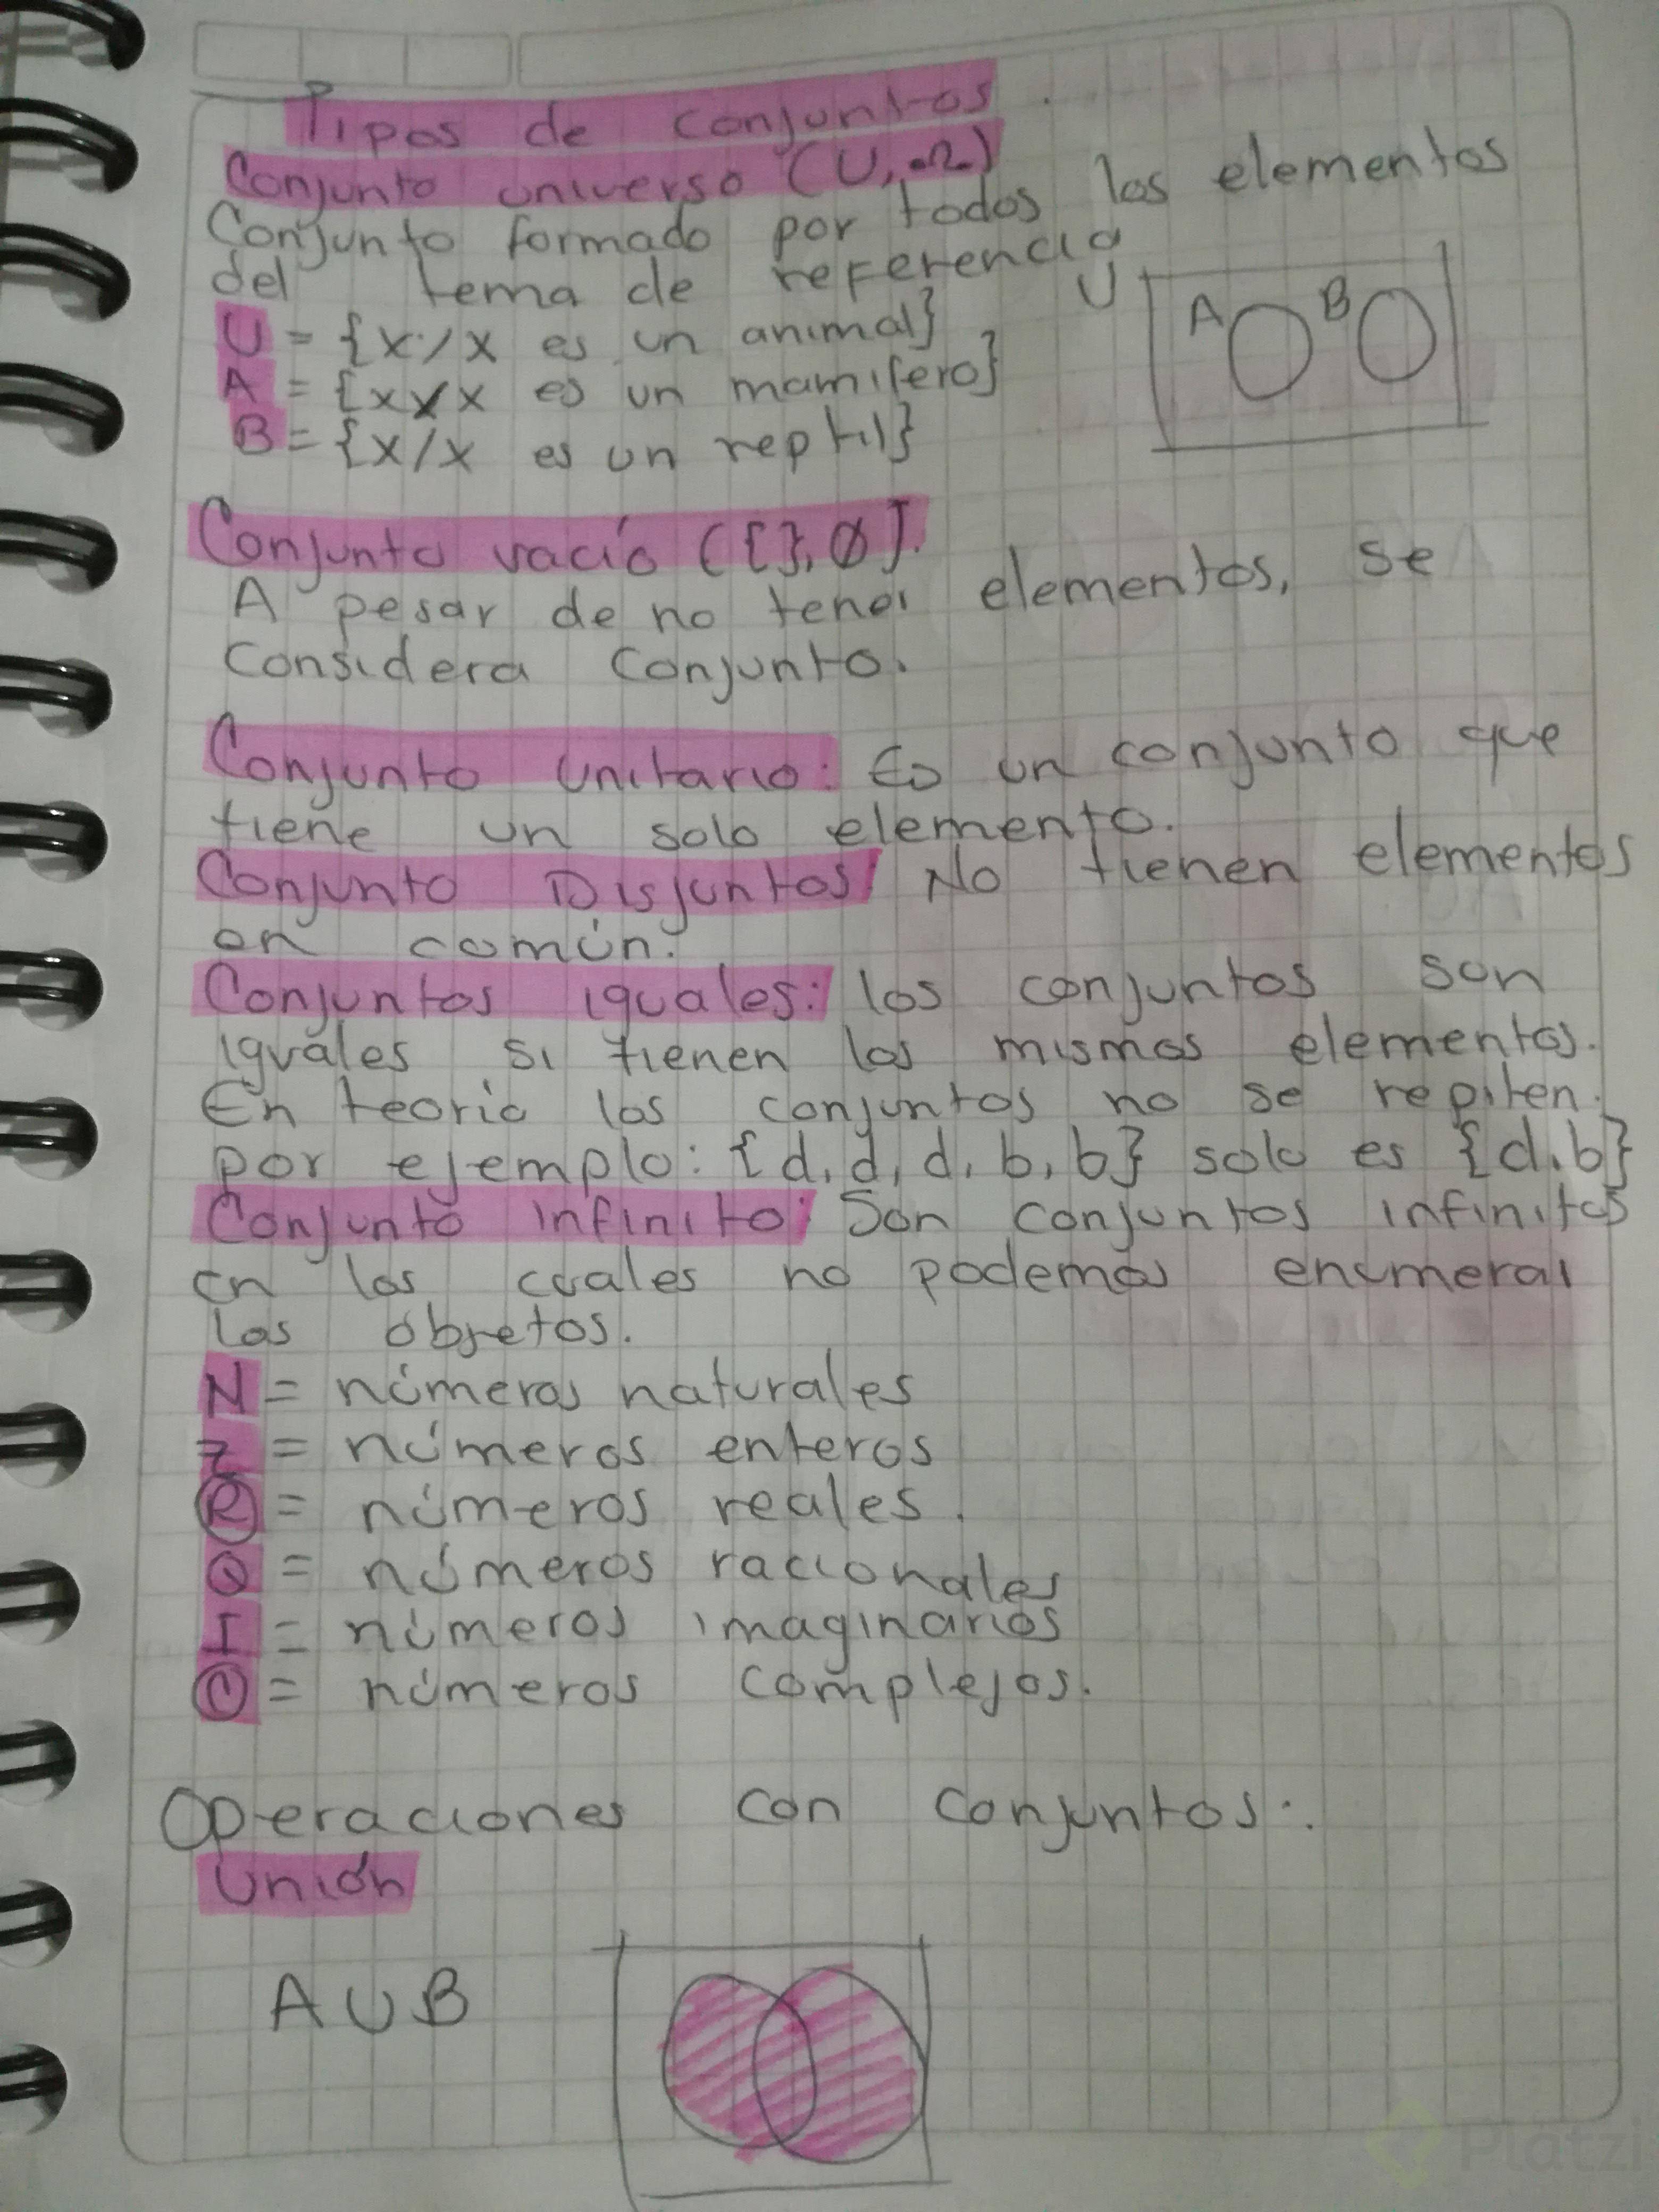 Tipos de conjuntos
Conjunto universo (U, Ω)
Conjunto formado por todos los elementos
del tema de referencia
U = {x/x es un animal}
A = {x/x es un mamifero}
B = {x/x es un reptil}
U
A B
Conjunto vacío ({}, ∅].
A pesar de no tener elementos, se
Considera Conjunto.
Conjunto unitario: Es un conjunto que
tiene un solo elemento.
Conjunto Disjuntos: No tienen elementos
en común.
Conjuntos iguales: los conjuntos son
iguales si tienen los mismos elementos.
En teoria los conjuntos no se repiten.
por ejemplo: {d, d, d, b, b} solo es {d, b}
Conjunto infinito: Son conjuntos infinitos
en los cuales no podemos enumerar
los objetos.
N = números naturales
Z = números enteros
R = números reales.
Q = números racionales
I = números imaginarios
C = números complejos.
Operaciones con conjuntos:
Unión
A U B
Platzi